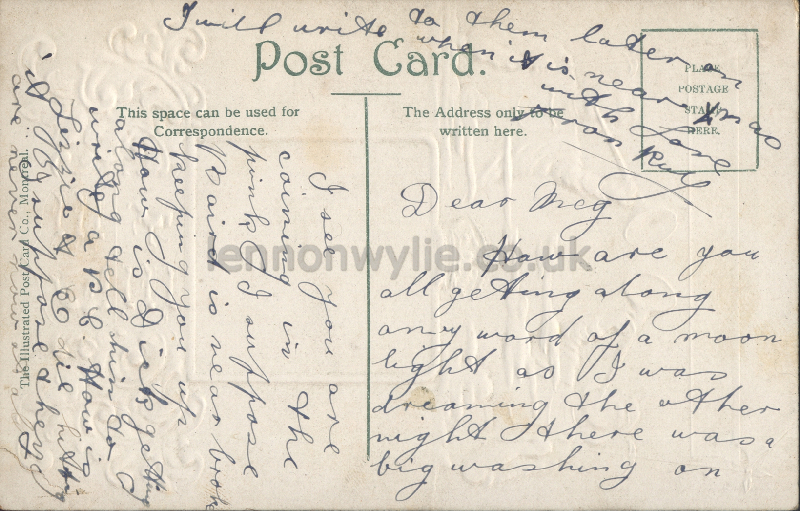 Post Card.
This space can be used for
Correspondence.
The Address only to be
written here.
PLACE
POSTAGE
STAMP
HERE.
The Illustrated Post Card Co., Montreal.
lennonwylie.co.uk
Dear Meg
How are you
all getting along
any word of a moon
light as I was
dreaming the other
night there was a
big washing on
I see you are
coming in the
pink I suppose
Baird is near broke
keeping you up
How is Dick getting
along tell him to
write a P C How is
Lizzie &
I suppose they
are never now
I will write to them later on
when it is near Xmas
with Love
from